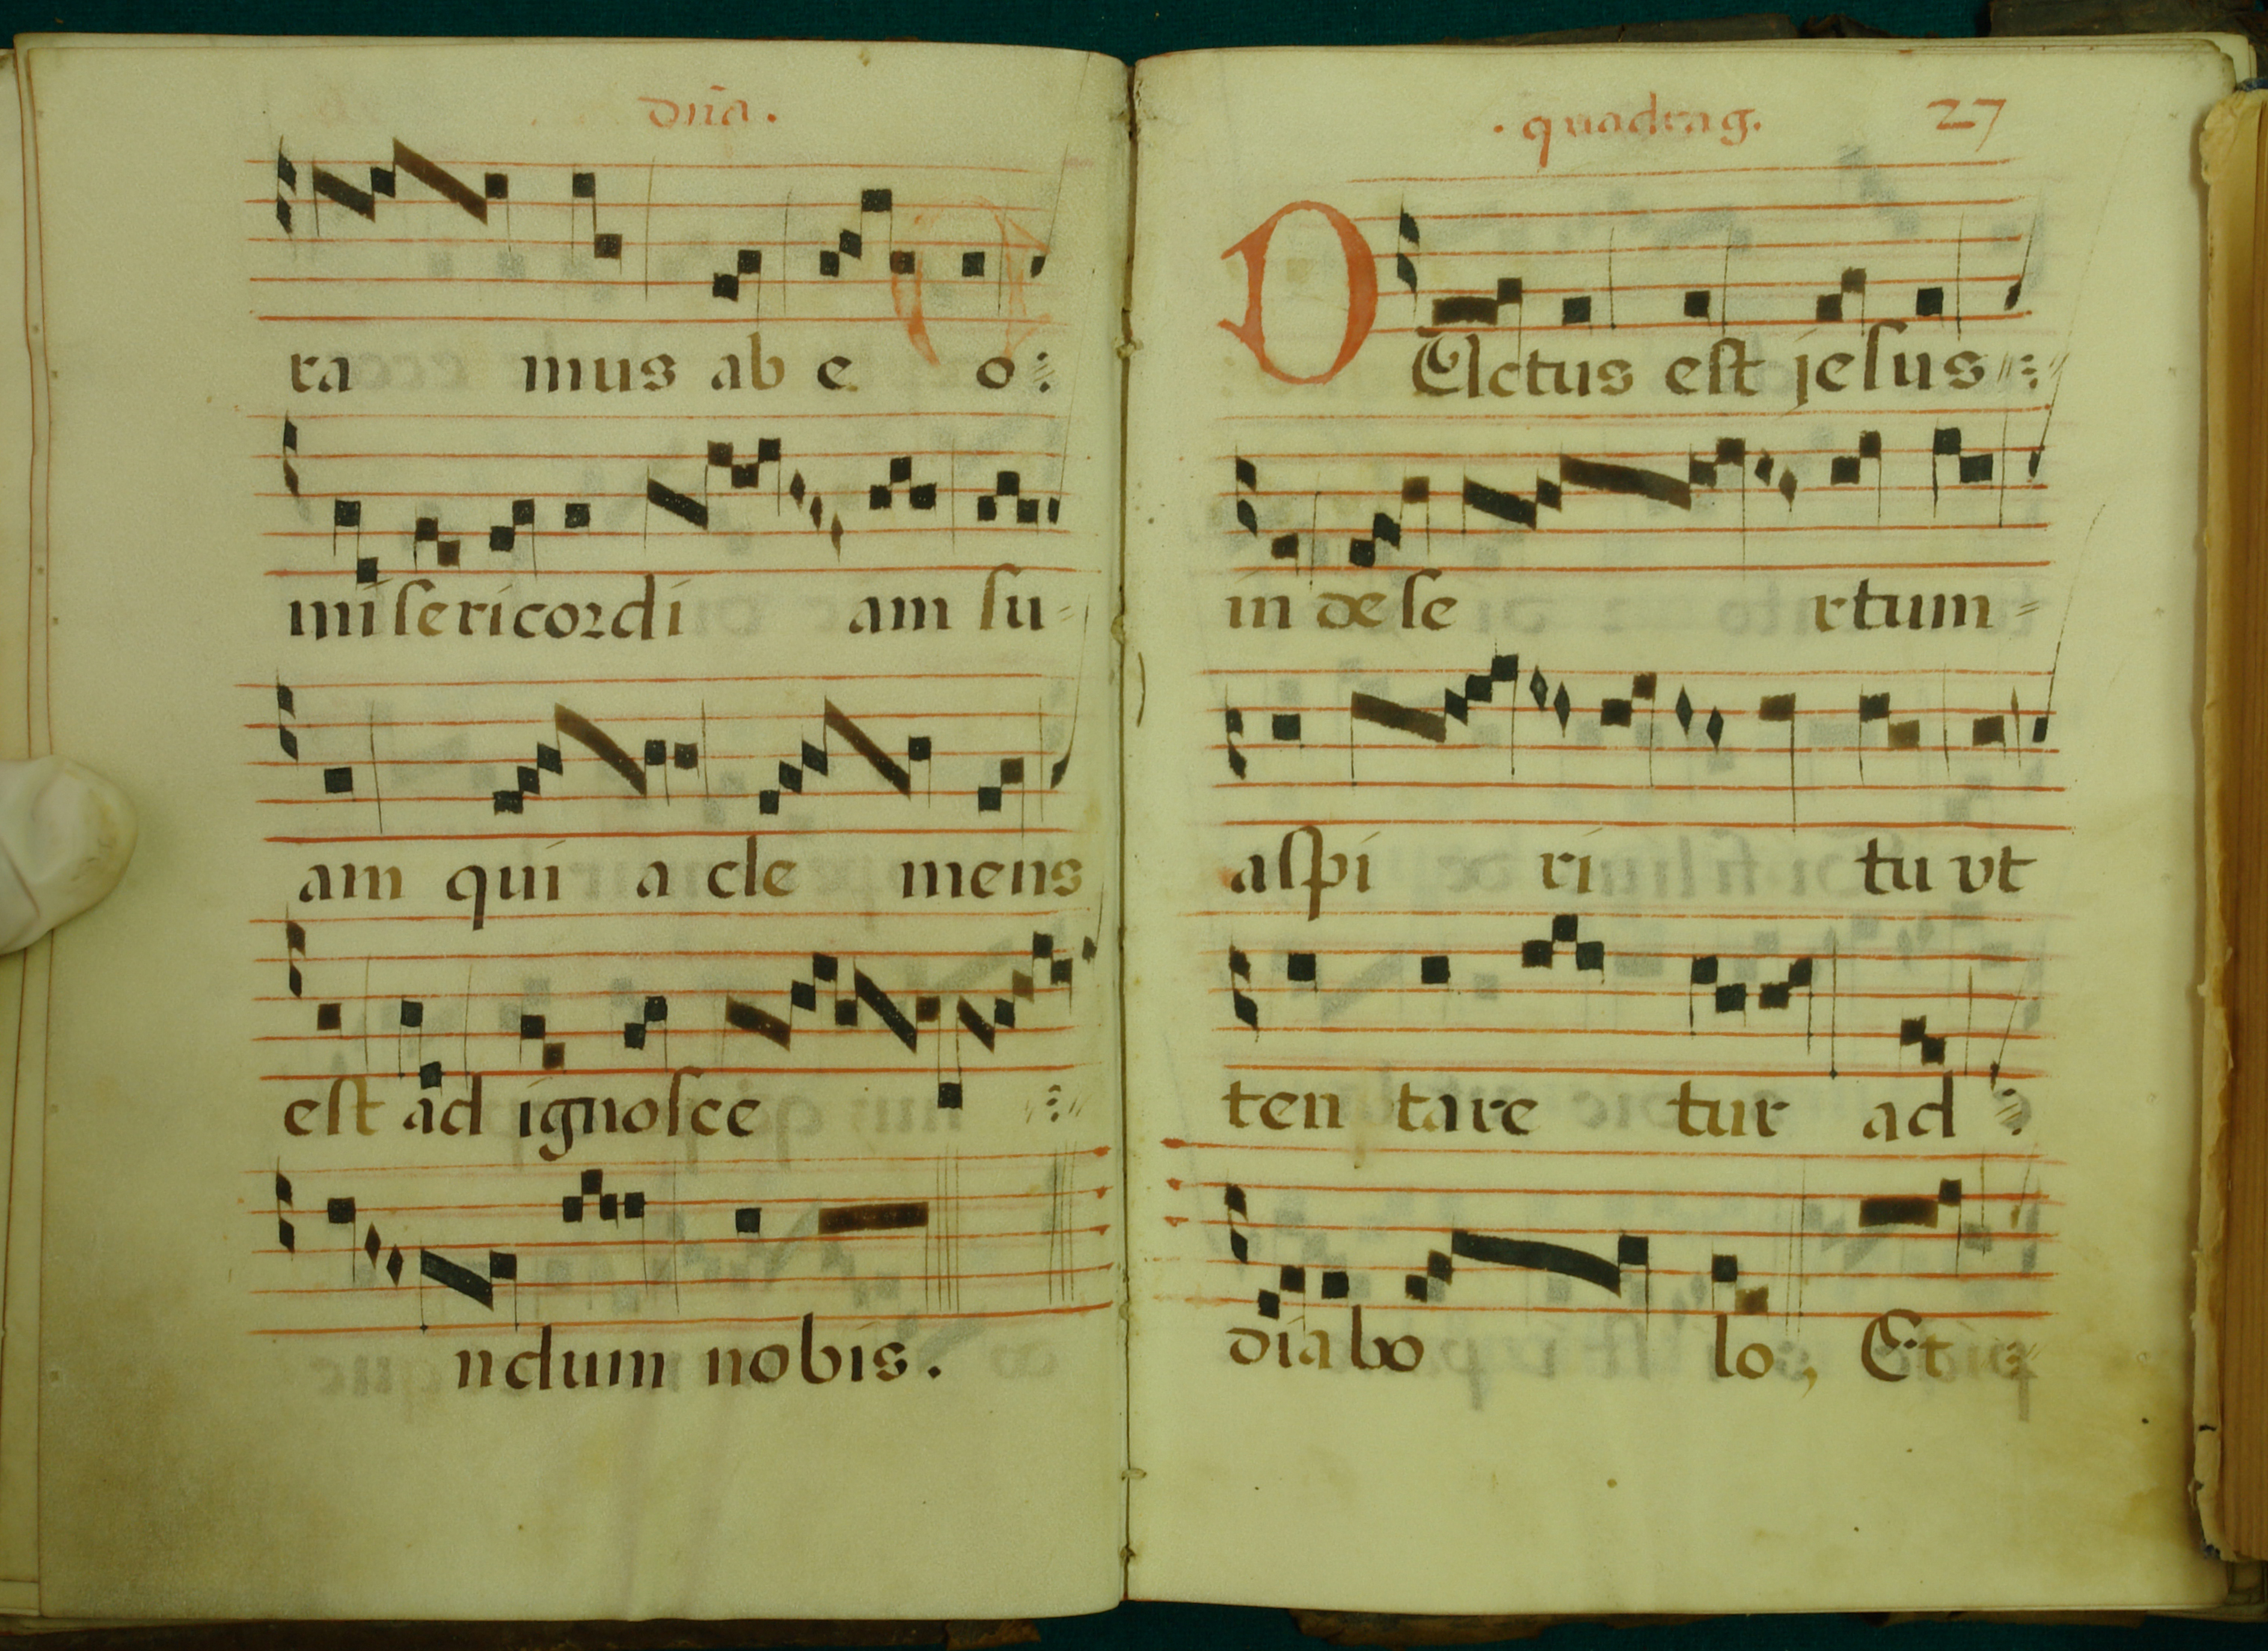 dn̄a.
ra mus ab e o:
misericordi am su
am qui a cle mens
est ad ignosce
ndum nobis.
. quadrag. 27
DUctus est jesus
in dese rtum
aspi ri tu vt
ten tare tur ad
diabo lo, Et